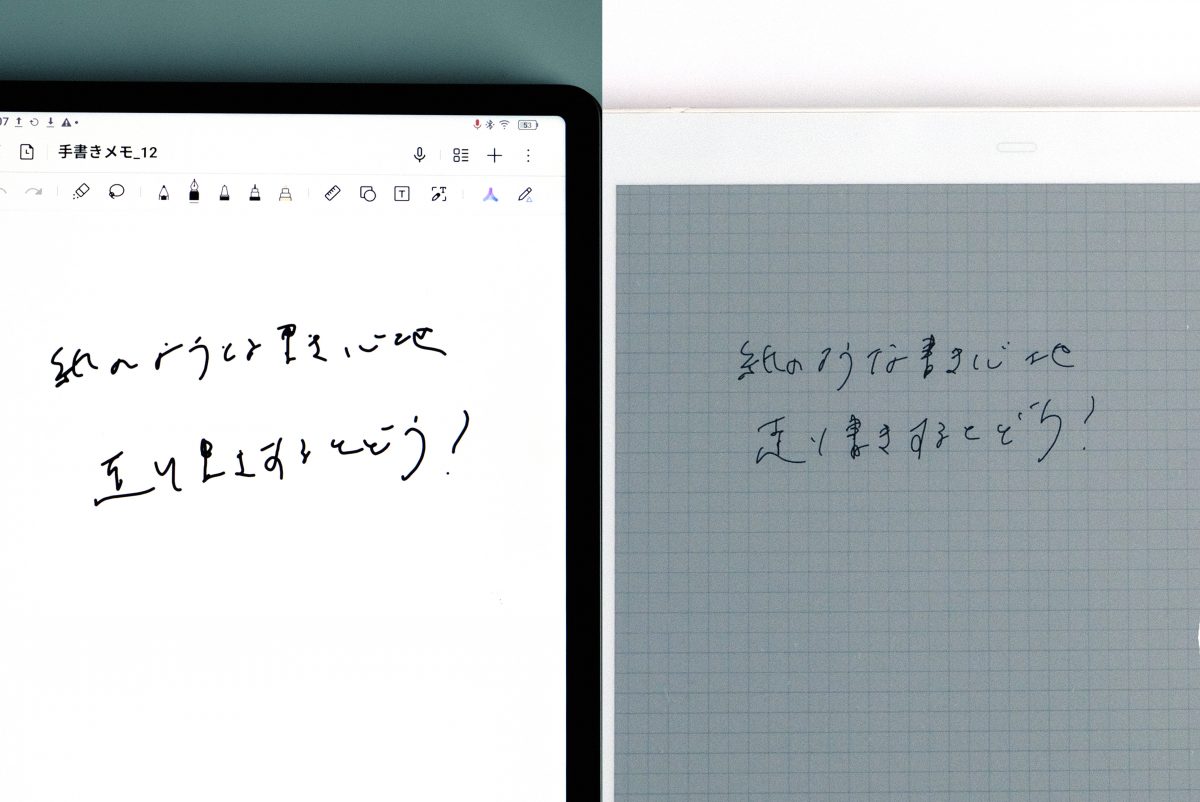 07
53
手書きメモ_12
T
紙のような書き心地
走り書きするとどう?
紙のような書き心地
走り書きするとどう?